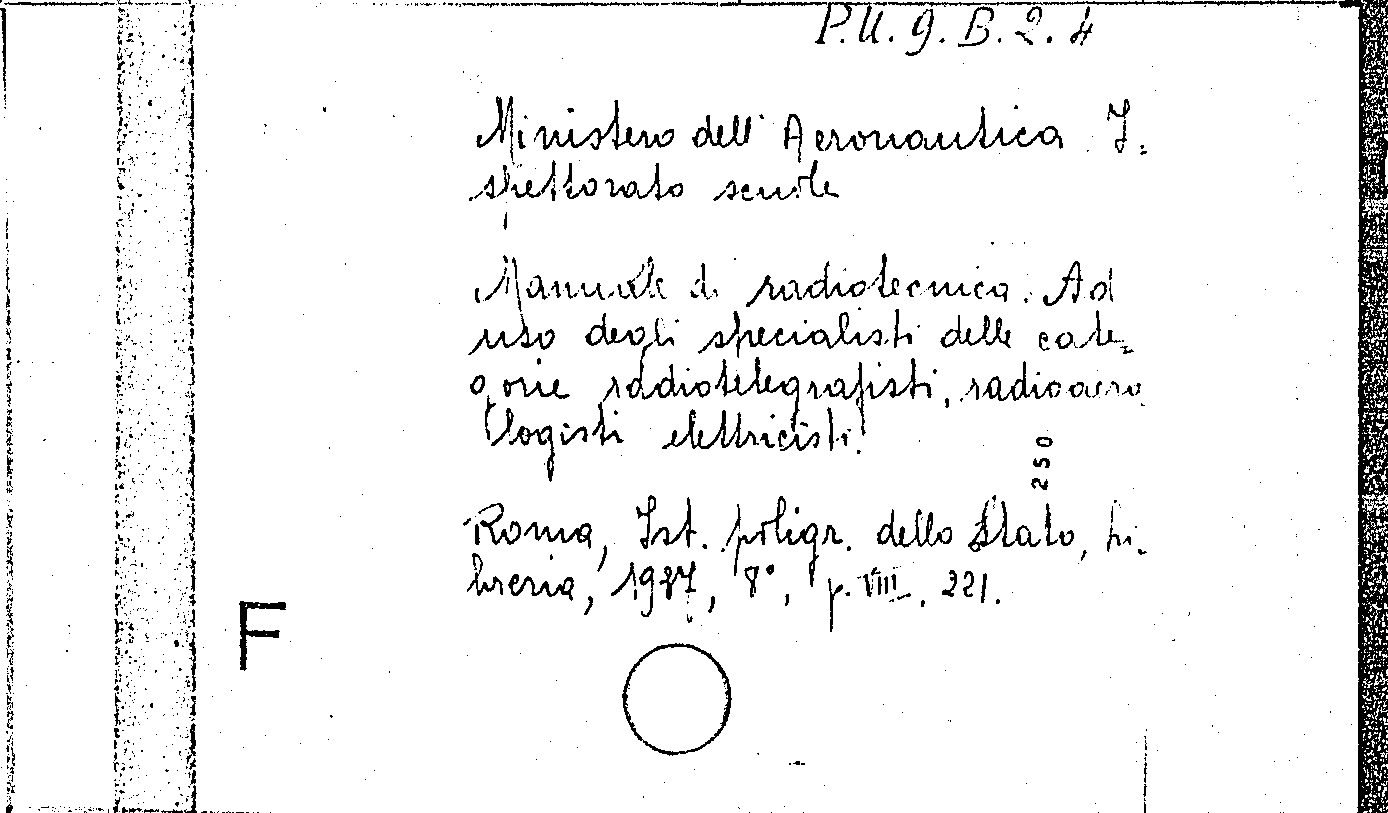 P.U. 9. B. 2. 4
Ministero dell' Aeronautica I=
spettorato scuole
Manuale di radiotecnica. Ad
uso degli specialisti delle cate=
gorie radiotelegrafisti, radioaero
logisti elettricisti.
250
Roma, Ist. poligr. dello Stato, li=
breria, 1937, 8°, p. VIII, 221.
F